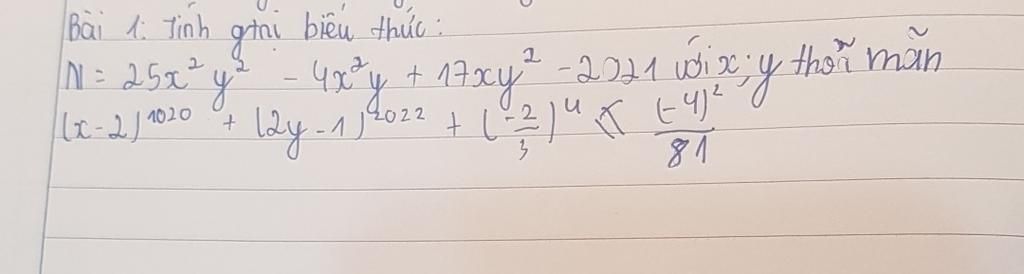 Bài 1: Tính gtrị biểu thức:
N = 25x²y² - 4x²y + 17xy² - 2021 với x; y thoã mãn
(x-2)¹⁰²⁰ + (2y-1)²⁰²² + (-2/3)⁴ ≤ (-4)²/81